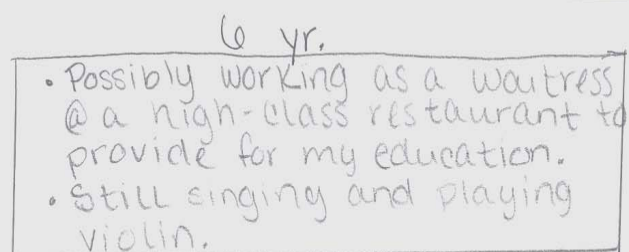 6 yr.
• Possibly working as a waitress
@ a high-class restaurant to
provide for my education.
• Still singing and playing
violin.